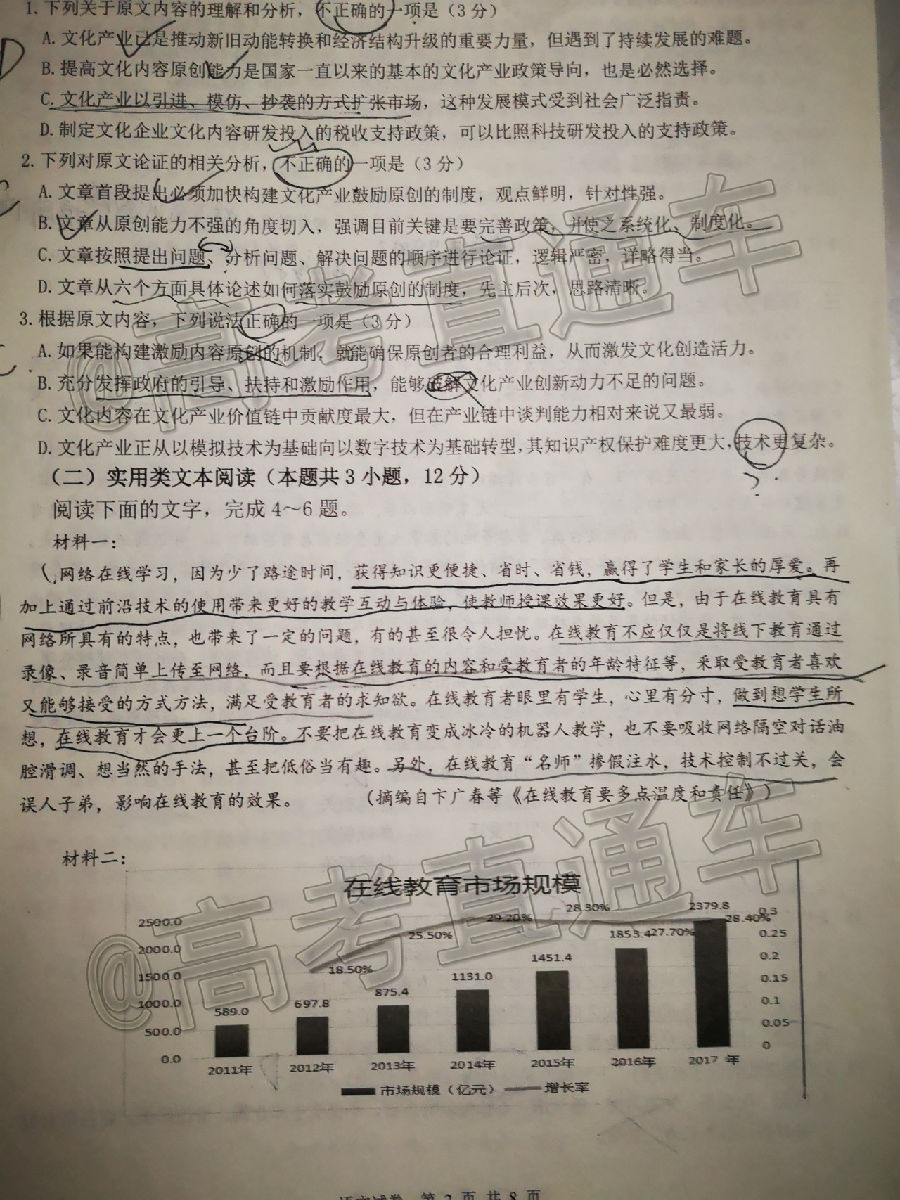 1.下列关于原文内容的理解和分析，不正确的一项是（3分）
A.文化产业已是推动新旧动能转换和经济结构升级的重要力量，但遇到了持续发展的难题。
B.提高文化内容原创能力是国家一直以来的基本的文化产业政策导向，也是必然选择。
C.文化产业以引进、模仿、抄袭的方式扩张市场，这种发展模式受到社会广泛指责。
D.制定文化企业文化内容研发投入的税收支持政策，可以比照科技研发投入的支持政策。
2.下列对原文论证的相关分析，不正确的一项是（3分）
A.文章首段提出必须加快构建文化产业鼓励原创的制度，观点鲜明，针对性强。
B.文章从原创能力不强的角度切入，强调目前关键是要完善政策，并使之系统化、制度化。
C.文章按照提出问题、分析问题、解决问题的顺序进行论证，逻辑严密，详略得当。
D.文章从六个方面具体论述如何落实鼓励原创的制度，先主后次，思路清晰。
3.根据原文内容，下列说法正确的一项是（3分）
A.如果能构建激励内容原创的机制，就能确保原创者的合理利益，从而激发文化创造活力。
B.充分发挥政府的引导、扶持和激励作用，能够破解文化产业创新动力不足的问题。
C.文化内容在文化产业价值链中贡献度最大，但在产业链中谈判能力相对来说又最弱。
D.文化产业正从以模拟技术为基础向以数字技术为基础转型，其知识产权保护难度更大，技术更复杂。
（二）实用类文本阅读（本题共3小题，12分）
阅读下面的文字，完成4～6题。
材料一：
网络在线学习，因为少了路途时间，获得知识更便捷、省时、省钱，赢得了学生和家长的厚爱。再
加上通过前沿技术的使用带来更好的教学互动与体验，使教师授课效果更好。但是，由于在线教育具有
网络所具有的特点，也带来了一定的问题，有的甚至很令人担忧。在线教育不应仅仅是将线下教育通过
录像、录音简单上传至网络，而且要根据在线教育的内容和受教育者的年龄特征等，采取受教育者喜欢
又能够接受的方式方法，满足受教育者的求知欲。在线教育者眼里有学生，心里有分寸，做到想学生所
想，在线教育才会更上一个台阶。不要把在线教育变成冰冷的机器人教学，也不要吸收网络隔空对话油
腔滑调、想当然的手法，甚至把低俗当有趣。另外，在线教育“名师”掺假注水，技术控制不过关，会
误人子弟，影响在线教育的效果。 （摘编自卞广春等《在线教育要多点温度和责任》）
材料二：
在线教育市场规模
2500.0 2000.0 1500.0 1000.0 500.0 0.0
589.0 697.8 875.4 1131.0 1451.4 1853.4 2379.8
18.50% 25.50% 29.20% 28.30% 27.70% 28.40%
0.3 0.25 0.2 0.15 0.1 0.05 0
2011年 2012年 2013年 2014年 2015年 2016年 2017 年
市场规模（亿元） 增长率
语文试卷 第 2 页 共 8 页
@高考直通车
@高考直通车